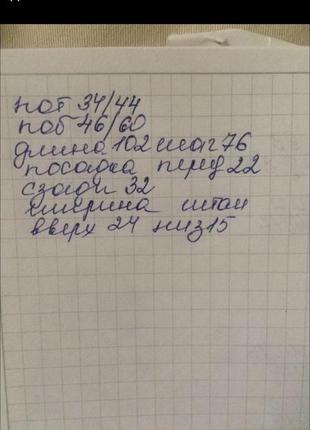 пот 34/44
поб 46/60
длина 102 шаг 76
посадка перед 22
сзади 32
ширина штан
вверх 24 низ 15